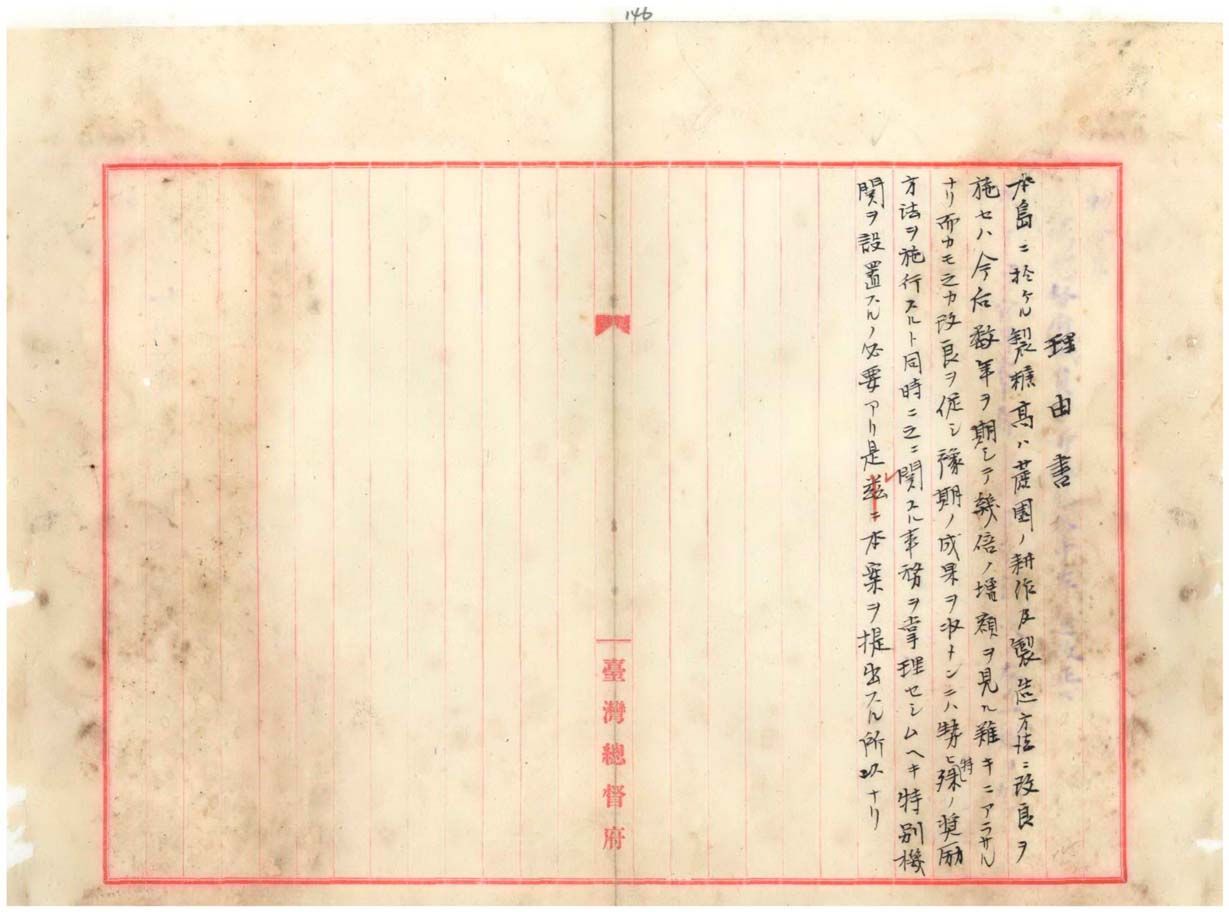 146
理由書
本島ニ於ケル製糖高ハ蔗園ノ耕作及製造方法ニ改良ヲ
施セハ今后数年ヲ期シテ幾倍ノ増額ヲ見ル難キニアラサル
ナリ而カモ之カ改良ヲ促シ豫期ノ成果ヲ収メンニハ勢ヒ特殊ノ奨励
方法ヲ施行スルト同時ニ之ニ関スル事務ヲ掌理セシムヘキ特別機
関ヲ設置スルノ必要アリ是茲ニ本案ヲ提出スル所以ナリ
臺灣總督府